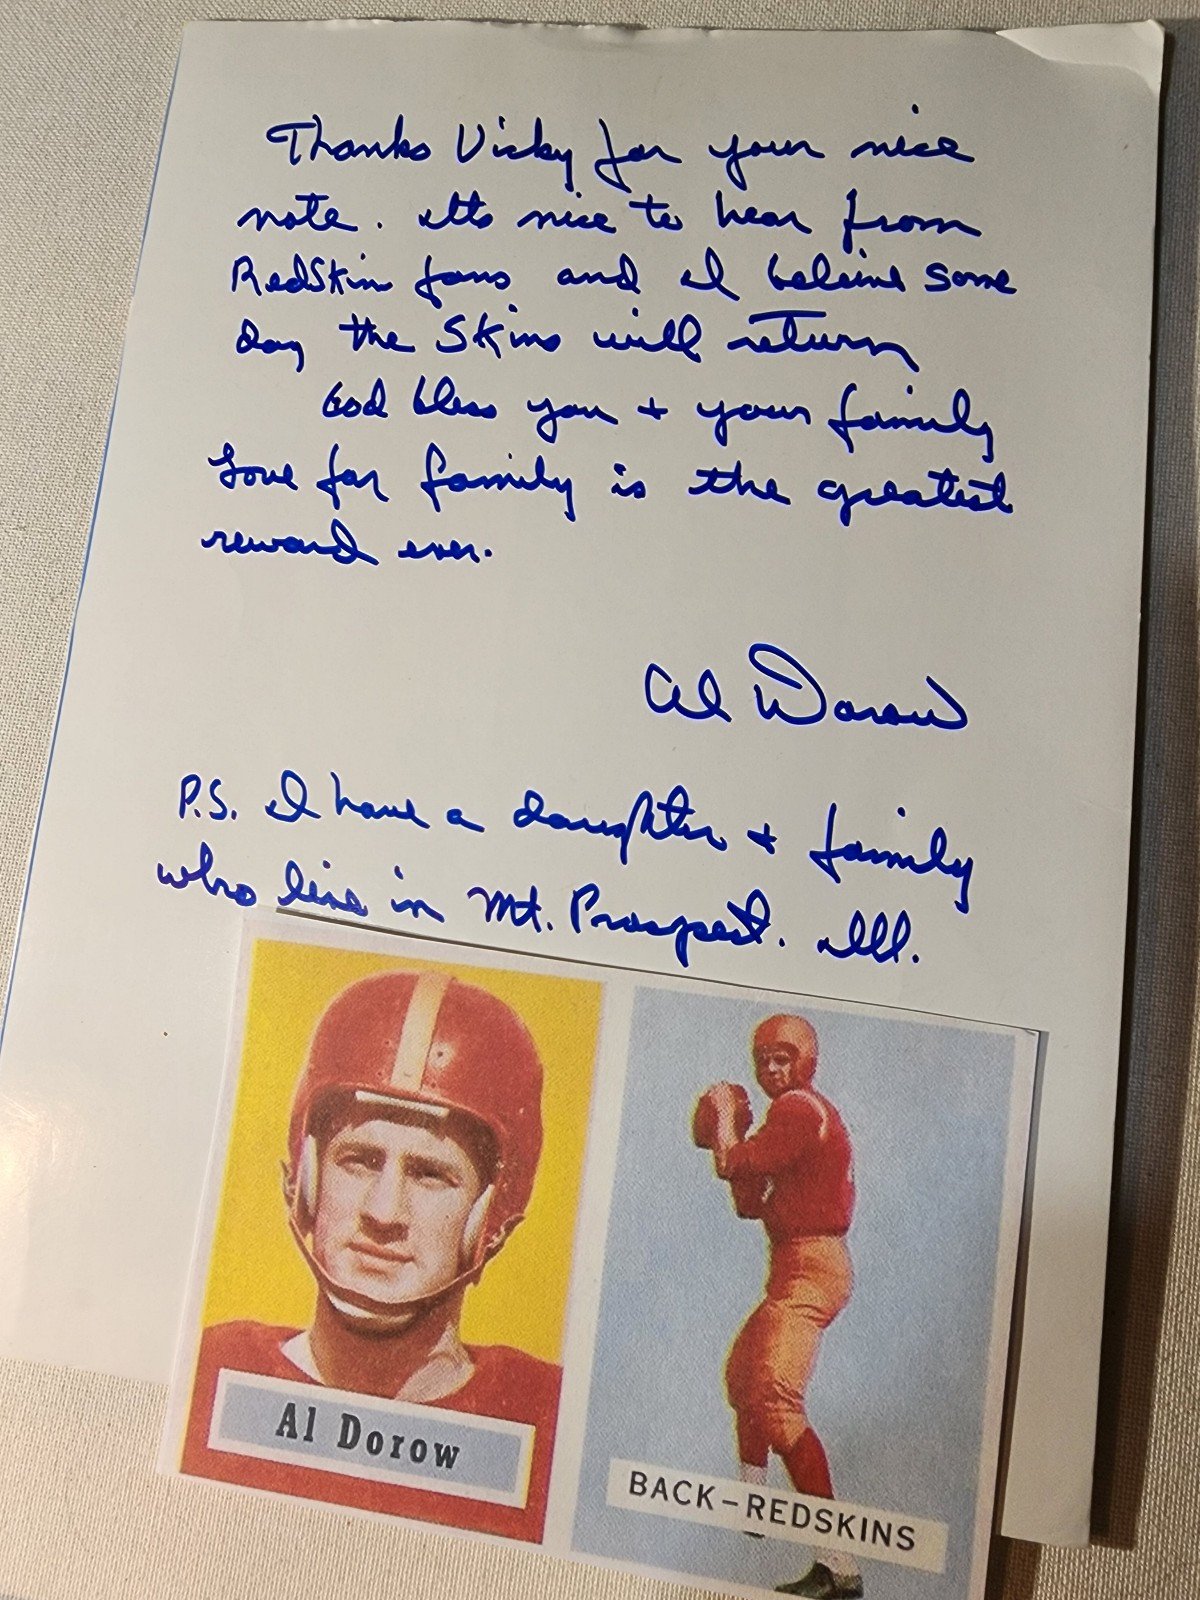 Thanks Vicky for your nice
note. Its nice to hear from
RedSkin fans and I believe some
day the Skins will return
God bless you + your family
Love for family is the greatest
reward ever.
Al Dorow
P.S. I have a daughter + family
who live in Mt. Prospect. Ill.
Al Dorow
BACK-REDSKINS